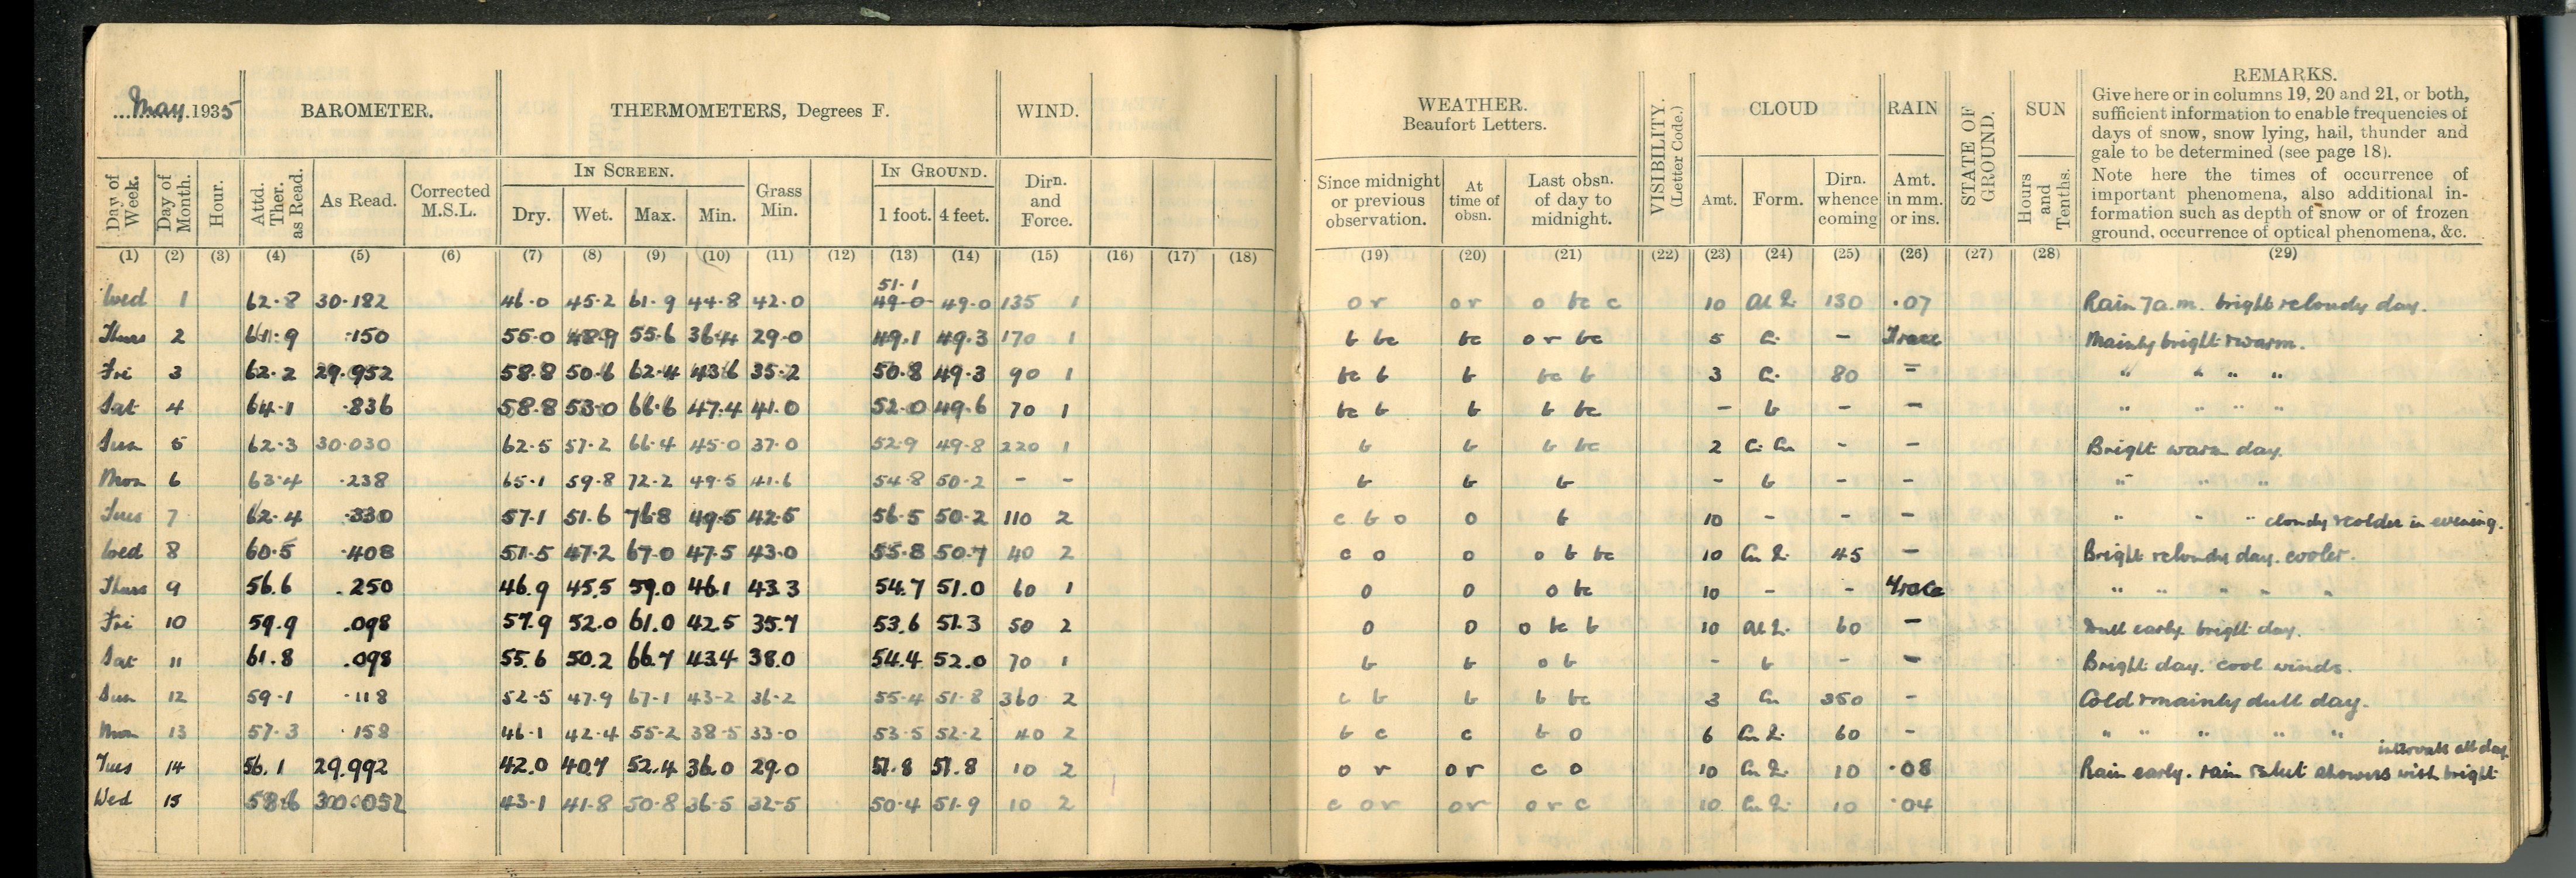 May. 1935
BAROMETER.
THERMOMETERS, Degrees F.
WIND.
WEATHER. Beaufort Letters.
VISIBILITY. (Letter Code.)
CLOUD
RAIN
STATE OF GROUND.
SUN
REMARKS.
Give here or in columns 19, 20 and 21, or both,
sufficient information to enable frequencies of
days of snow, snow lying, hail, thunder and
gale to be determined (see page 18).
Note here the times of occurrence of
important phenomena, also additional in-
formation such as depth of snow or of frozen
ground, occurrence of optical phenomena, &c.
Day of Week.
Day of Month.
Hour.
Attd. Ther. as Read.
As Read.
Corrected M.S.L.
IN SCREEN.
Dry. Wet. Max. Min.
Grass Min.
IN GROUND.
1 foot. 4 feet.
Dirn. and Force.
Since midnight or previous observation.
At time of obsn.
Last obsn. of day to midnight.
Amt. Form. Dirn. whence coming
Amt. in mm. or ins.
Hours and Tenths.
(1) (2) (3) (4) (5) (6) (7) (8) (9) (10) (11) (12) (13) (14) (15) (16) (17) (18) (19) (20) (21) (22) (23) (24) (25) (26) (27) (28) (29)
51.1
Wed 1 62.8 30.182 46.0 45.2 61.9 44.8 42.0 49.0 49.0 135 1 o r o r o bc c 10 130 .07 Rain 7 a.m. bright & cloudy day.
Thurs 2 61.9 .150 55.0 48.9 55.6 36.4 29.0 49.1 49.3 170 1 b bc bc o r bc 5 Ci. – Trace Mainly bright & warm.
Fri 3 62.2 29.952 58.8 50.6 62.4 43.6 35.2 50.8 49.3 90 1 bc b b bc b 3 Ci. 80 – " " " "
Sat 4 64.1 .836 58.8 53.0 66.6 47.4 41.0 52.0 49.6 70 1 bc b b b bc – b – – " " " "
Sun 5 62.3 30.030 62.5 57.2 66.4 45.0 37.0 52.9 49.8 220 1 b b b bc 2 Ci. Cu – – Bright warm day.
Mon 6 63.4 .238 65.1 59.8 72.2 49.5 41.6 54.8 50.2 – – b b b – b – – " " "
Tues 7 62.4 .330 57.1 51.6 76.8 49.5 42.5 56.5 50.2 110 2 c b o o b 10 – – – " " " cloudy & colder in evening.
Wed 8 60.5 .408 51.5 47.2 67.0 47.5 43.0 55.8 50.7 40 2 c o o o b bc 10 45 – Bright & cloudy day. cooler.
Thurs 9 56.6 .250 46.9 45.5 59.0 46.1 43.3 54.7 51.0 60 1 o o o bc 10 – – Trace " " " " "
Fri 10 59.9 .098 57.9 52.0 61.0 42.5 35.7 53.6 51.3 50 2 o o o bc b 10 60 – Dull early. bright day.
Sat 11 61.8 .098 55.6 50.2 66.7 43.4 38.0 54.4 52.0 70 1 b b o b – b – – Bright day. cool winds.
Sun 12 59.1 .118 52.5 47.9 67.1 43.2 36.2 55.4 51.8 360 2 c b b b bc 3 Cu 350 – Cold & mainly dull day.
Mon 13 57.3 .158 46.1 42.4 55.2 38.5 33.0 53.5 52.2 40 2 b c c b o 6 60 – " " " " "
Tues 14 56.1 29.992 42.0 40.7 52.4 36.0 29.0 51.8 51.8 10 2 o r o r c o 10 10 .08 Rain early. rain & sleet showers with bright intervals all day
Wed 15 58.6 30.052 43.1 41.8 50.8 36.5 32.5 50.4 51.9 10 2 c o r o r o r c 10 10 .04